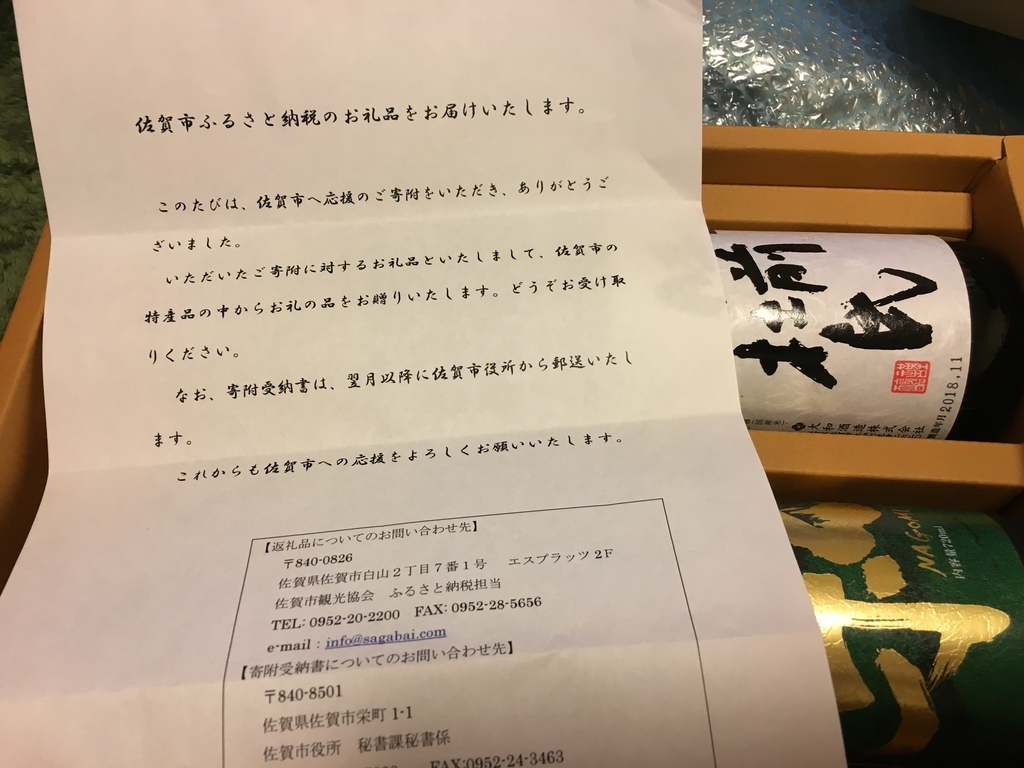 佐賀市ふるさと納税のお礼品をお届けいたします。
このたびは、佐賀市へ応援のご寄附をいただき、ありがとうご
ざいました。
いただいたご寄附に対するお礼品といたしまして、佐賀市の
特産品の中からお礼の品をお贈りいたします。どうぞお受け取
りください。
なお、寄附受納書は、翌月以降に佐賀市役所から郵送いたし
ます。
これからも佐賀市への応援をよろしくお願いいたします。
【返礼品についてのお問い合わせ先】
〒840-0826
佐賀県佐賀市白山2丁目7番1号 エスプラッツ2F
佐賀市観光協会 ふるさと納税担当
TEL: 0952-20-2200 FAX: 0952-28-5656
e-mail : info@sagabai.com
【寄附受納書についてのお問い合わせ先】
〒840-8501
佐賀県佐賀市栄町 1-1
佐賀市役所 秘書課秘書係
FAX:0952-24-3463
大和酒造株式会社
製造年月 2018.11
NAGOMI
内容量720ml